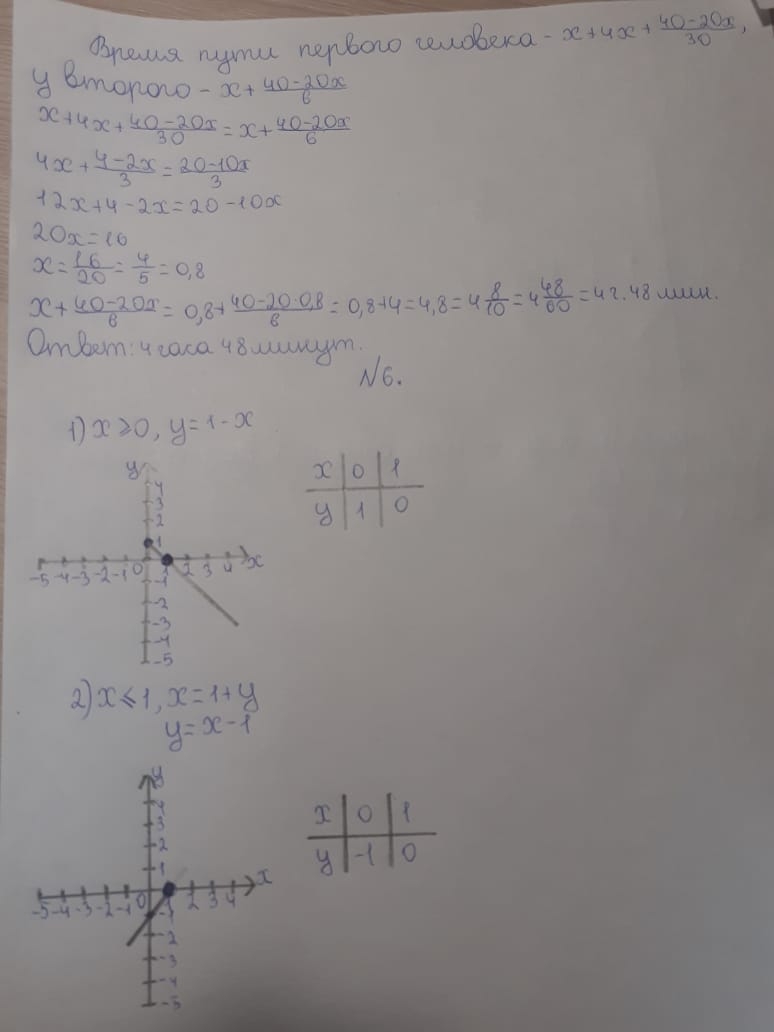 Время пути первого человека - x+4x+\frac{40-20x}{30},
у второго - x+\frac{40-20x}{6}
x+4x+\frac{40-20x}{30}=x+\frac{40-20x}{6}
4x+\frac{4-2x}{3}=\frac{20-10x}{3}
12x+4-2x=20-10x
20x=16
x=\frac{16}{20}=\frac{4}{5}=0,8
x+\frac{40-20x}{6}=0,8+\frac{40-20·0,8}{6}=0,8+4=4,8=4\frac{8}{10}=4\frac{48}{60}=4г.48 мин.
Ответ: 4 часа 48 минут.
N6.
1) x⩾0, y=1-x
y
4
3
2
1
-5 -4 -3 -2 -1 0 1 2 3 4 x
-1
-2
-3
-4
-5
x 0 1
y 1 0
2) x⩽1, x=1+y
y=x-1
y
3
2
1
-5 -4 -3 -2 -1 0 1 2 3 4 x
-2
-3
-4
-5
x 0 1
y -1 0